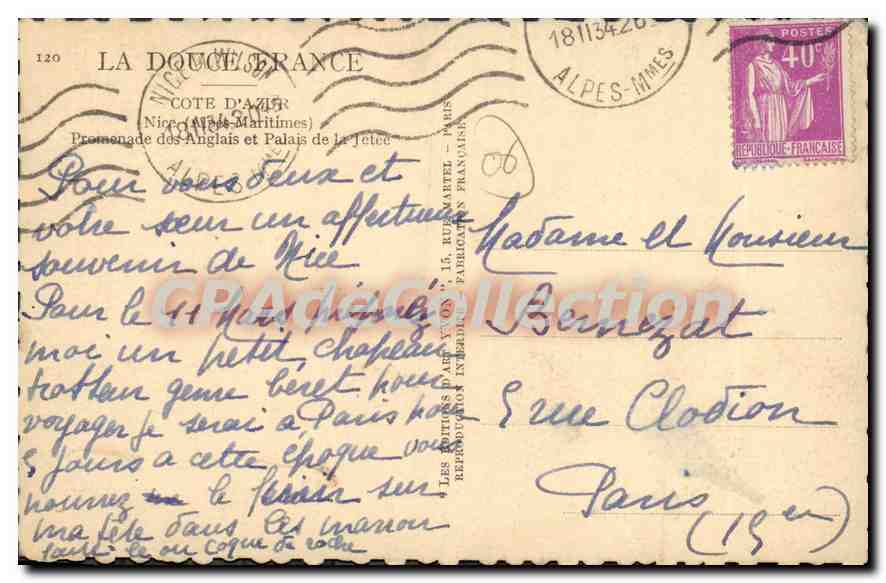 120
LA DOUCE FRANCE
COTE D'AZUR
Nice (Alpes-Maritimes)
Promenade des Anglais et Palais de la Jetée
Pour vous deux et
votre sœur un affectueux
souvenir de Nice
Pour le 11 Mars
moi un petit chapeau
trotteur genre béret pour
voyager je serai à Paris pour
5 jours a cette époque vous
pourrez le sur
ma tête dans les marron
ou coque de
NICE
ALPES-MMES
18 II 34
ALPES-MMES
POSTES
40c
REPUBLIQUE FRANÇAISE
06
LES ÉDITIONS D'ART "YVON", 15, RUE MARTEL — PARIS
REPRODUCTION INTERDITE FABRICATION FRANÇAISE
CPAdeCollection
Madame et Monsieur
Bernezat
5 rue Clodion
Paris
(15em)